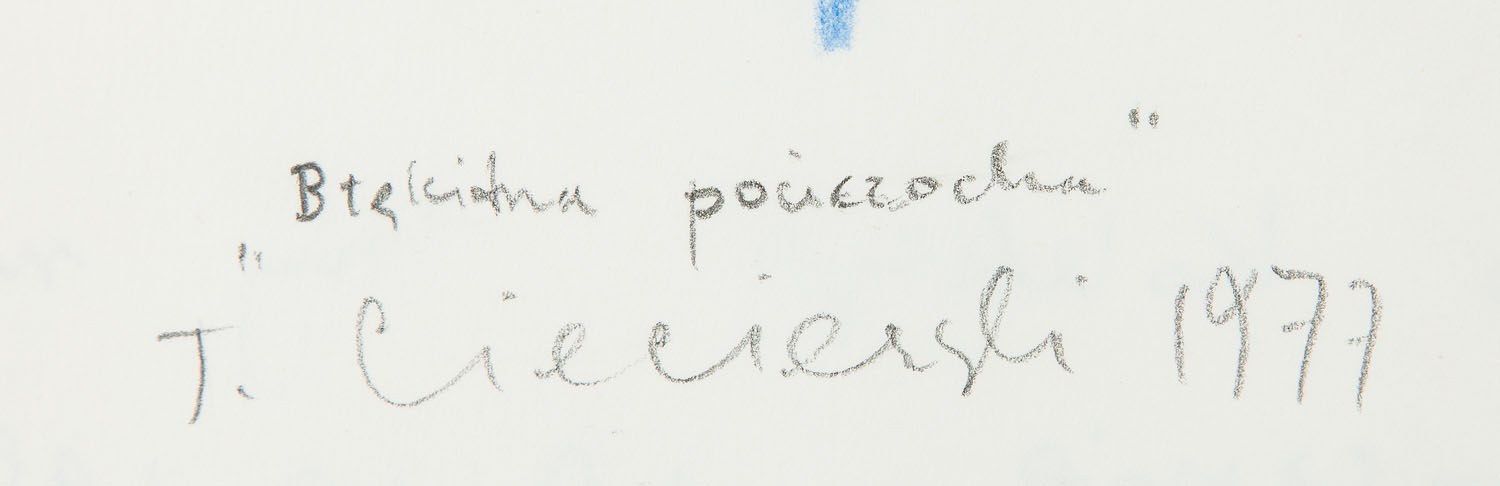 "Błękitna pończocha"
T. Ciecierski 1977